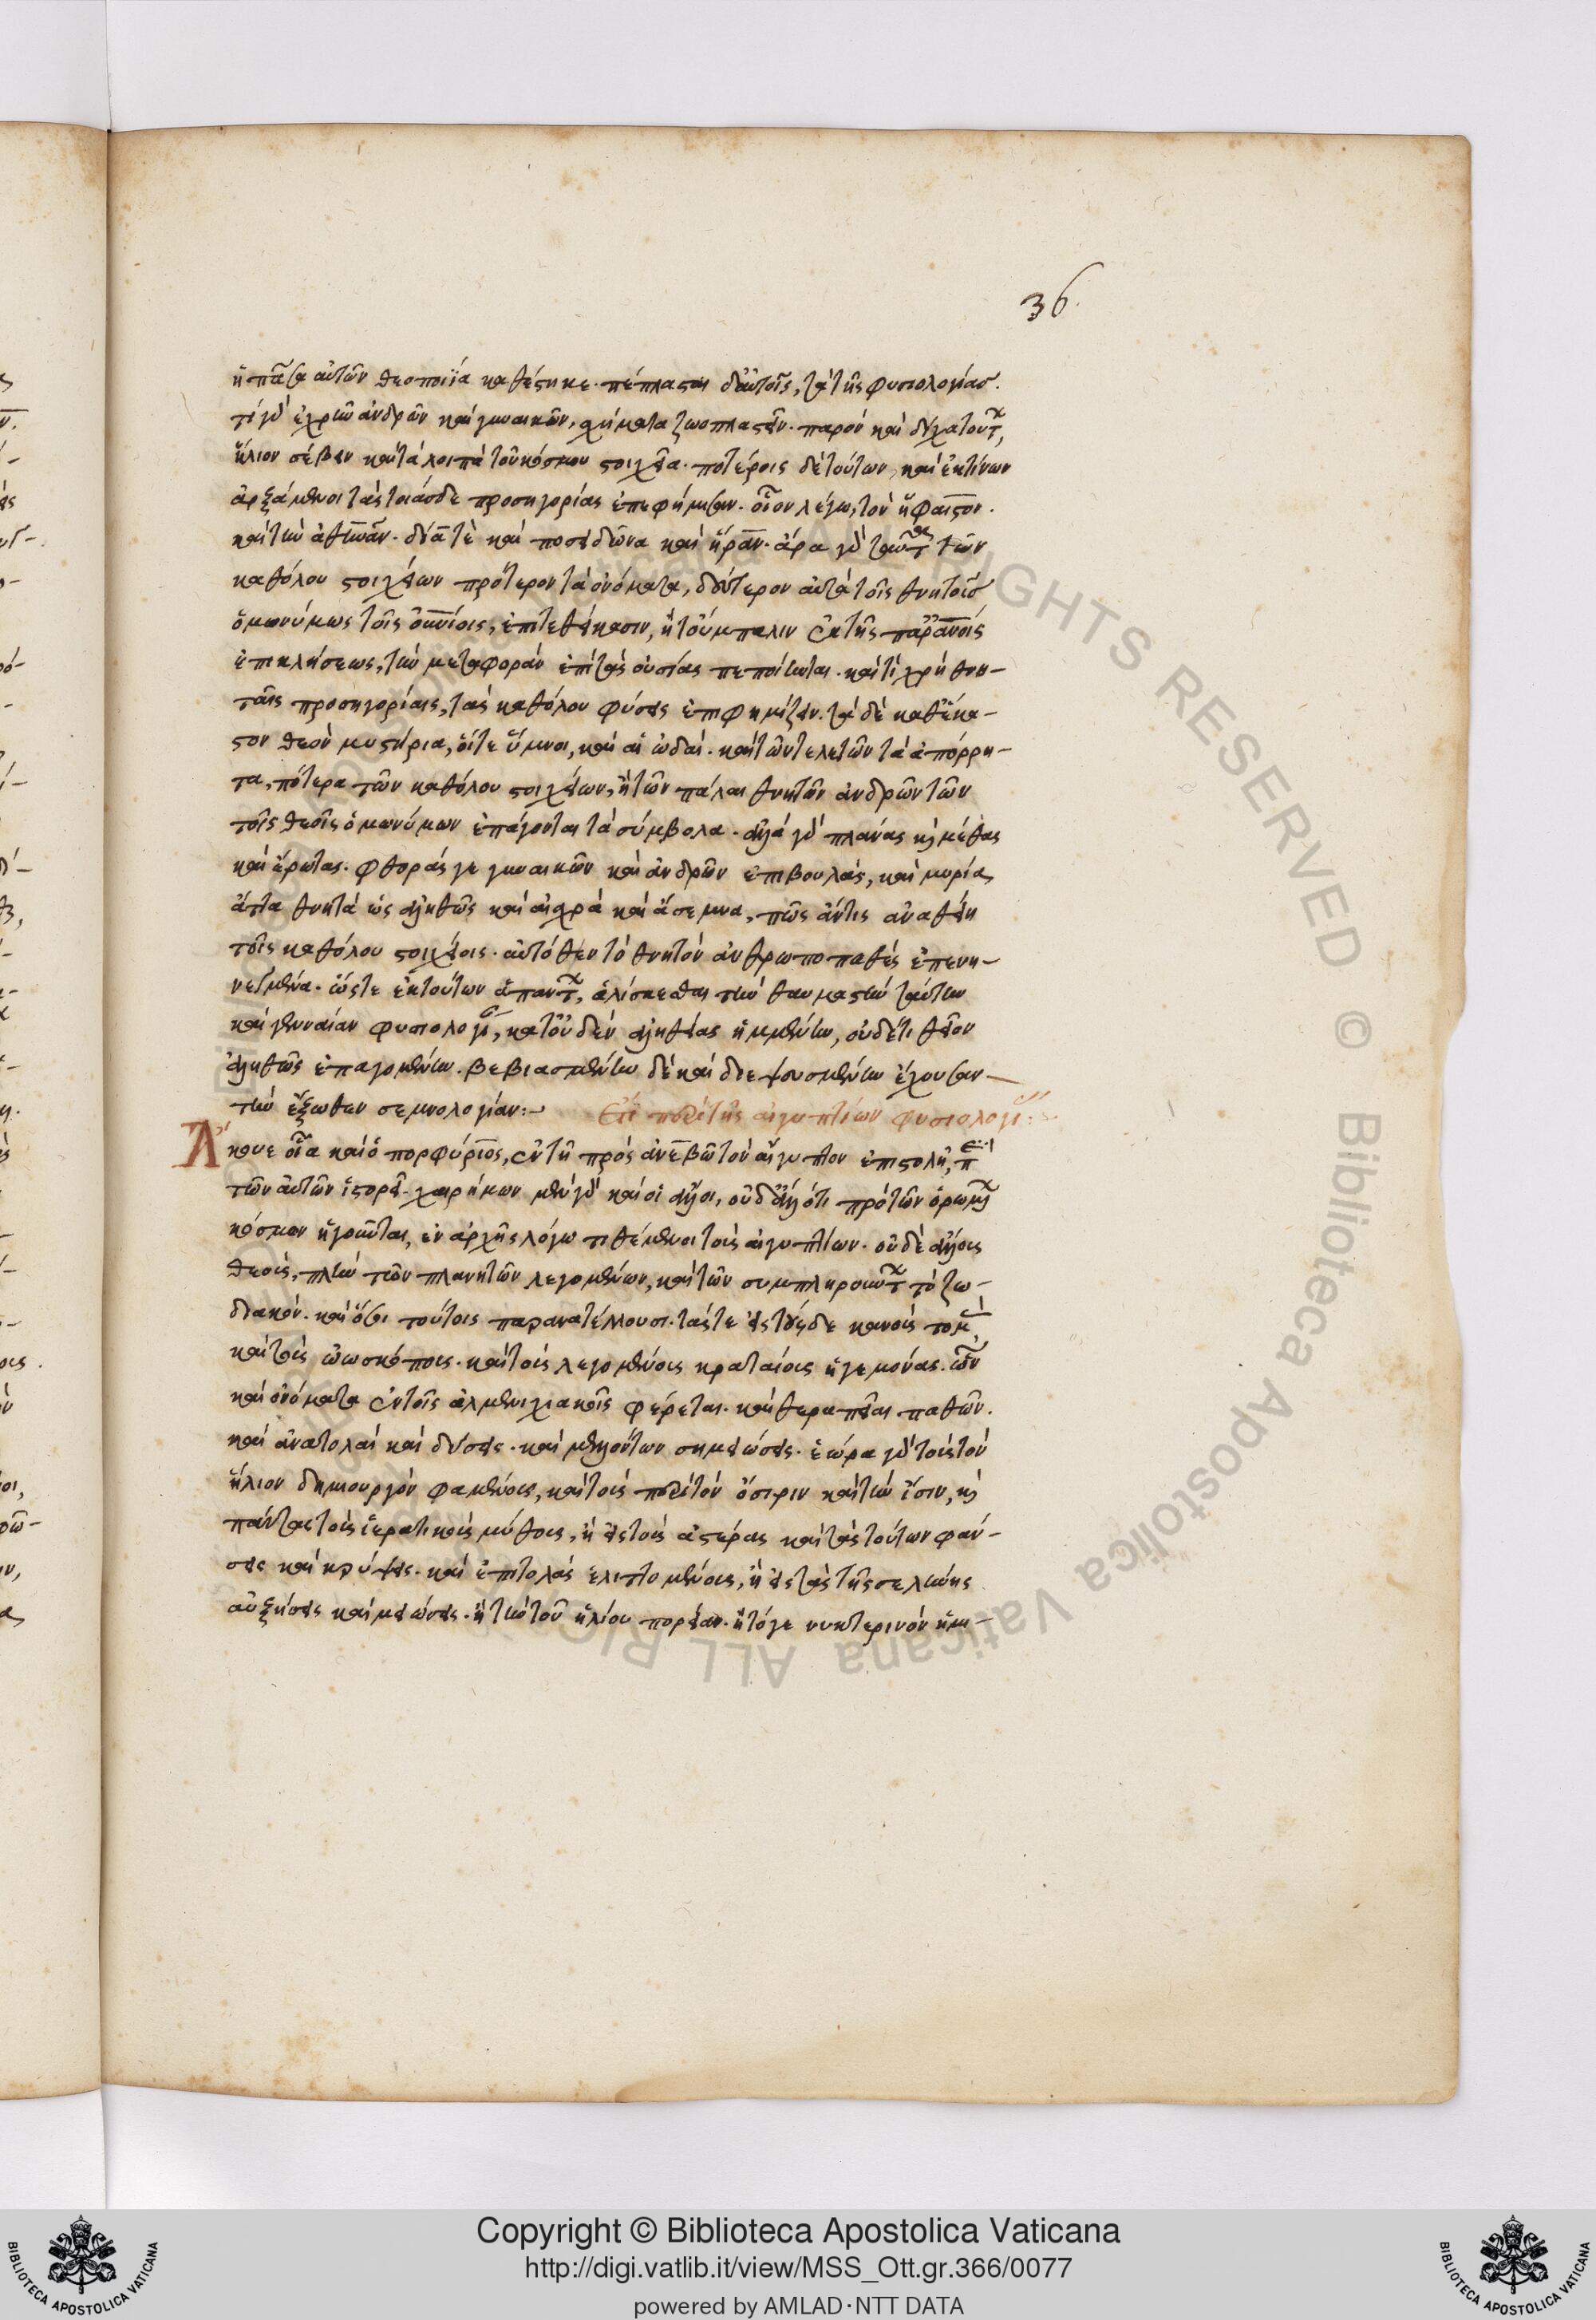 36.
ἡ πᾶσα αὐτῶν θεοποιΐα καθέστηκε. πέπλασται δ' αὐτοῖς, τὰ τῆς φυσιολογίας.
τί γὰρ ἐχρῆν ἀνδρῶν καὶ γυναικῶν, σχήματα ζωοπλαστεῖν. παρὸν καὶ δίχα τούτων,
ἥλιον σέβειν καὶ τὰ λοιπὰ τοῦ κόσμου στοιχεῖα. ποτέροις δὲ τούτων, καὶ ἐκ τίνων
ἀρξάμενοι τὰς τοιάσδε προσηγορίας ἐπεφήμισαν. οἷον λέγω, τὸν ἥφαιστον.
καὶ τὴν ἀθηνᾶν. δία τὲ καὶ ποσειδῶνα καὶ ἥραν. ἆρα γὰρ ταῦτα τῶν
καθόλου στοιχείων πρότερον τὰ ὀνόματα, δεύτερον αὐτὰ τοῖς θνητοῖς
ὁμωνύμως τοῖς οὐρανίοις, ἐπιτεθείκασιν, ἢ τοὔμπαλιν ἐκ τῆς παρ' ἀνοις
ἐπικλήσεως, τὴν μεταφορὰν ἐπὶ τὰς οὐσίας πεποίηνται. καὶ τί χρὴ θνη-
ταῖς προσηγορίαις, τὰς καθόλου φύσεις ἐπιφημίζειν. τὰ δὲ καθ' ἕκα-
στον θεὸν μυστήρια, οἵτε ὕμνοι, καὶ αἱ ὠδαὶ. καὶ τῶν τελετῶν τὰ ἀπόρρη-
τα, πότερα τῶν καθόλου στοιχείων, ἢ τῶν πάλαι θνητῶν ἀνδρῶν τῶν
τοῖς θεοῖς ὁμωνύμων ἐπάγονται τὰ σύμβολα. ἀλλὰ γὰρ πλάνας καὶ μέθας
καὶ ἔρωτας. φθοράς γε γυναικῶν καὶ ἀνδρῶν ἐπιβουλὰς, καὶ μυρία
ἄττα θνητὰ ὡς ἀληθῶς καὶ αἰσχρὰ καὶ ἄσεμνα, πῶς ἄν τις ἀναθείη
τοῖς καθόλου στοιχείοις. αὐτόθεν τὸ θνητὸν ἀνθρωποπαθὲς ἐπενη-
νεγμένα. ὥστε ἐκ τούτων ἁπάντων, ἁλίσκεσθαι τὴν θαυμαστὴν ταύτην
καὶ γενναίαν φυσιολογίαν, κατ' οὐδὲν ἀληθείας ἡμμένην, οὐδέ τι θεῖον
ἀληθῶς ἐπαγομένην. βεβιασμένην δὲ καὶ διεψευσμένην ἔχουσαν
τὴν ἔξωθεν σεμνολογίαν:- Ἔτι περὶ τῆς αἰγυπτίων φυσιολογίας:
Ἄκουε οἷα καὶ ὁ πορφύριος, ἐν τῇ πρὸς ἀνεβῶ τὸν αἰγύπτιον ἐπιστολῇ, περὶ
τῶν αὐτῶν ἱστορεῖ. χαιρήμων μὲν γὰρ καὶ οἱ ἄλλοι, οὐδ' ἄλλό τι πρὸ τῶν ὁρωμένων
κόσμων ἡγοῦνται, ἐν ἀρχῆς λόγῳ τιθέμενοι τοὺς αἰγυπτίων. οὐδὲ ἄλλους
θεοὺς, πλὴν τῶν πλανητῶν λεγομένων, καὶ τῶν συμπληρούντων τὸ ζω-
διακόν. καὶ ὅσοι τούτοις παρανατέλλουσι. τάς τε εἰς τοὺς δεκανοὺς τομὰς,
καὶ τοὺς ὡροσκόπους. καὶ τοὺς λεγομένους κραταίους ἡγεμόνας. ὧν
καὶ ὀνόματα ἐν τοῖς ἀλμενιχιακοῖς φέρεται. καὶ θεραπεῖαι παθῶν.
καὶ ἀνατολαὶ καὶ δύσεις. καὶ μελλόντων σημειώσεις. ἑώρα γὰρ τοὺς τὸν
ἥλιον δημιουργὸν φαμένους, καὶ τοὺς περὶ τὸν ὄσιριν καὶ τὴν ἴσιν, καὶ
πάντας τοὺς ἱερατικοὺς μύθους, ἢ εἰς τοὺς ἀστέρας καὶ τὰς τούτων φάν-
σεις καὶ κρύψεις. καὶ ἐπιτολὰς ἑλιττομένους, ἢ εἰς τὰς τῆς σελήνης
αὐξήσεις καὶ μειώσεις. ἢ τὴν τοῦ ἡλίου πορείαν. ἢ τό γε νυκτερινὸν ἡμι-
Copyright © Biblioteca Apostolica Vaticana
http://digi.vatlib.it/view/MSS_Ott.gr.366/0077
powered by AMLAD·NTT DATA
BIBLIOTECA APOSTOLICA VATICANA
BIBLIOTECA APOSTOLICA VATICANA